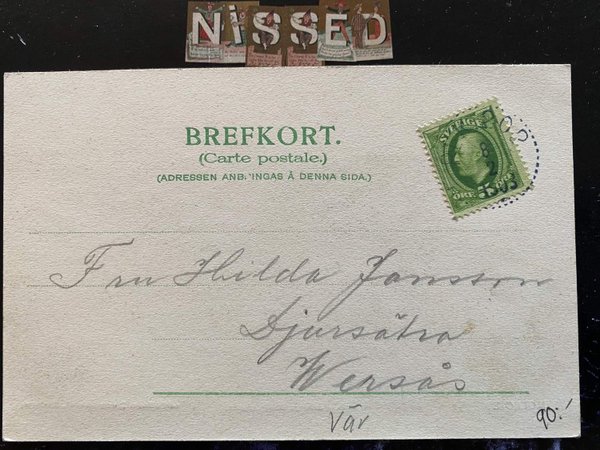 NiSSED
BREFKORT.
(Carte postale.)
(ADRESSEN ANB.'INGAS Å DENNA SIDA.)
SVERIGE
5 ÖRE 5
8
2
1903
Fru Hilda Jansson
Djursätra
Wersås
Vär
90:-